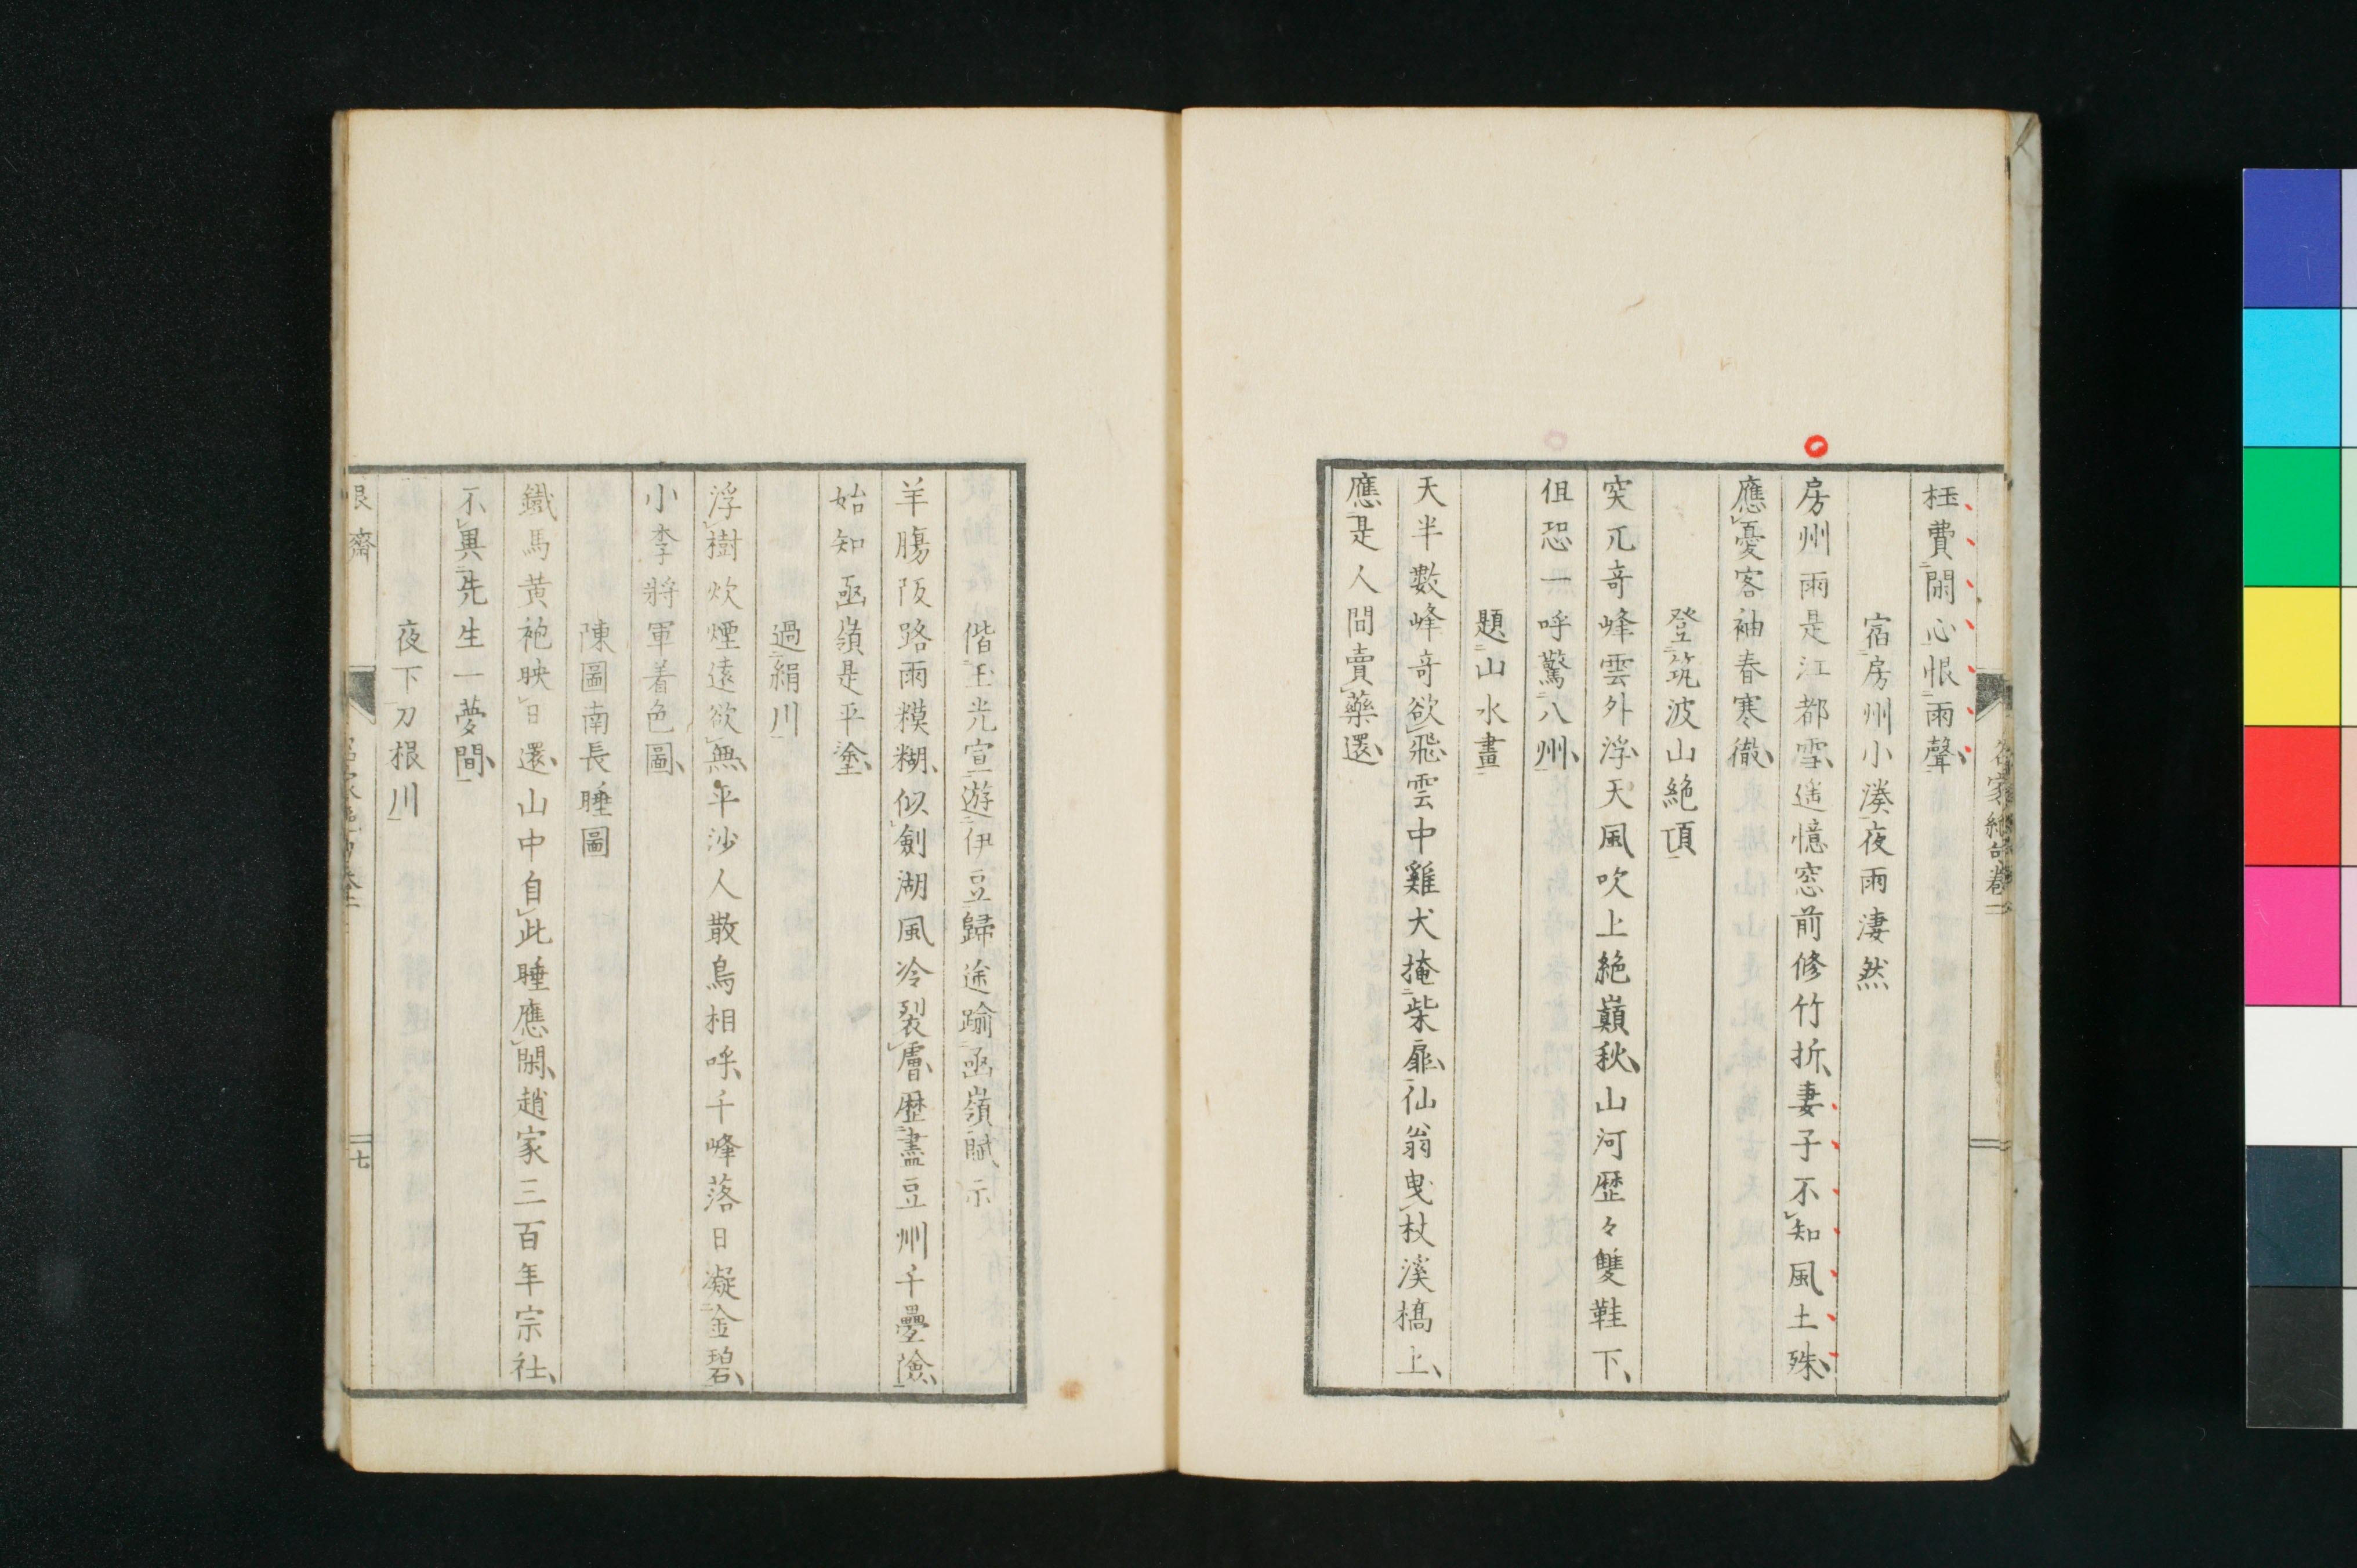 枉費閑心恨雨聲
宿房州小湊夜雨淒然
房州雨是江都雪遥憶窓前修竹折妻子不知風土殊
應憂客袖春寒徹
登筑波山絶頂
突兀奇峰雲外浮天風吹上絶巓秋山河歴々雙鞋下
但恐一呼驚八州
題山水畫
天半數峰奇欲飛雲中雞犬掩柴扉仙翁曳杖溪橋上
應是人間賣藥還
偕玉光宣遊伊豆歸途踰函嶺賦示
羊膓阪路雨糢糊似劍湖風冷裂膚歴盡豆州千疊險
始知函嶺是平塗
過絹川
浮樹炊煙遠欲無平沙人散鳥相呼千峰落日凝金碧
小李將軍着色圖
陳圖南長睡圖
鐵馬黄袍映日還山中自此睡應閑趙家三百年宗社
不異先生一夢間
夜下刀根川
齋
七